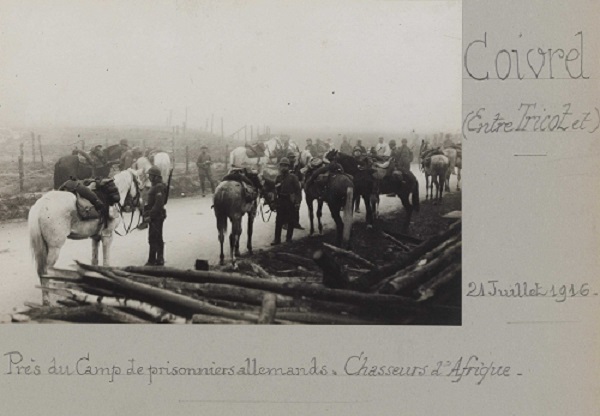 Coivrel
(Entre Tricot et)
21 Juillet 1916 -
Près du Camp de prisonniers allemands. Chasseurs d'Afrique -